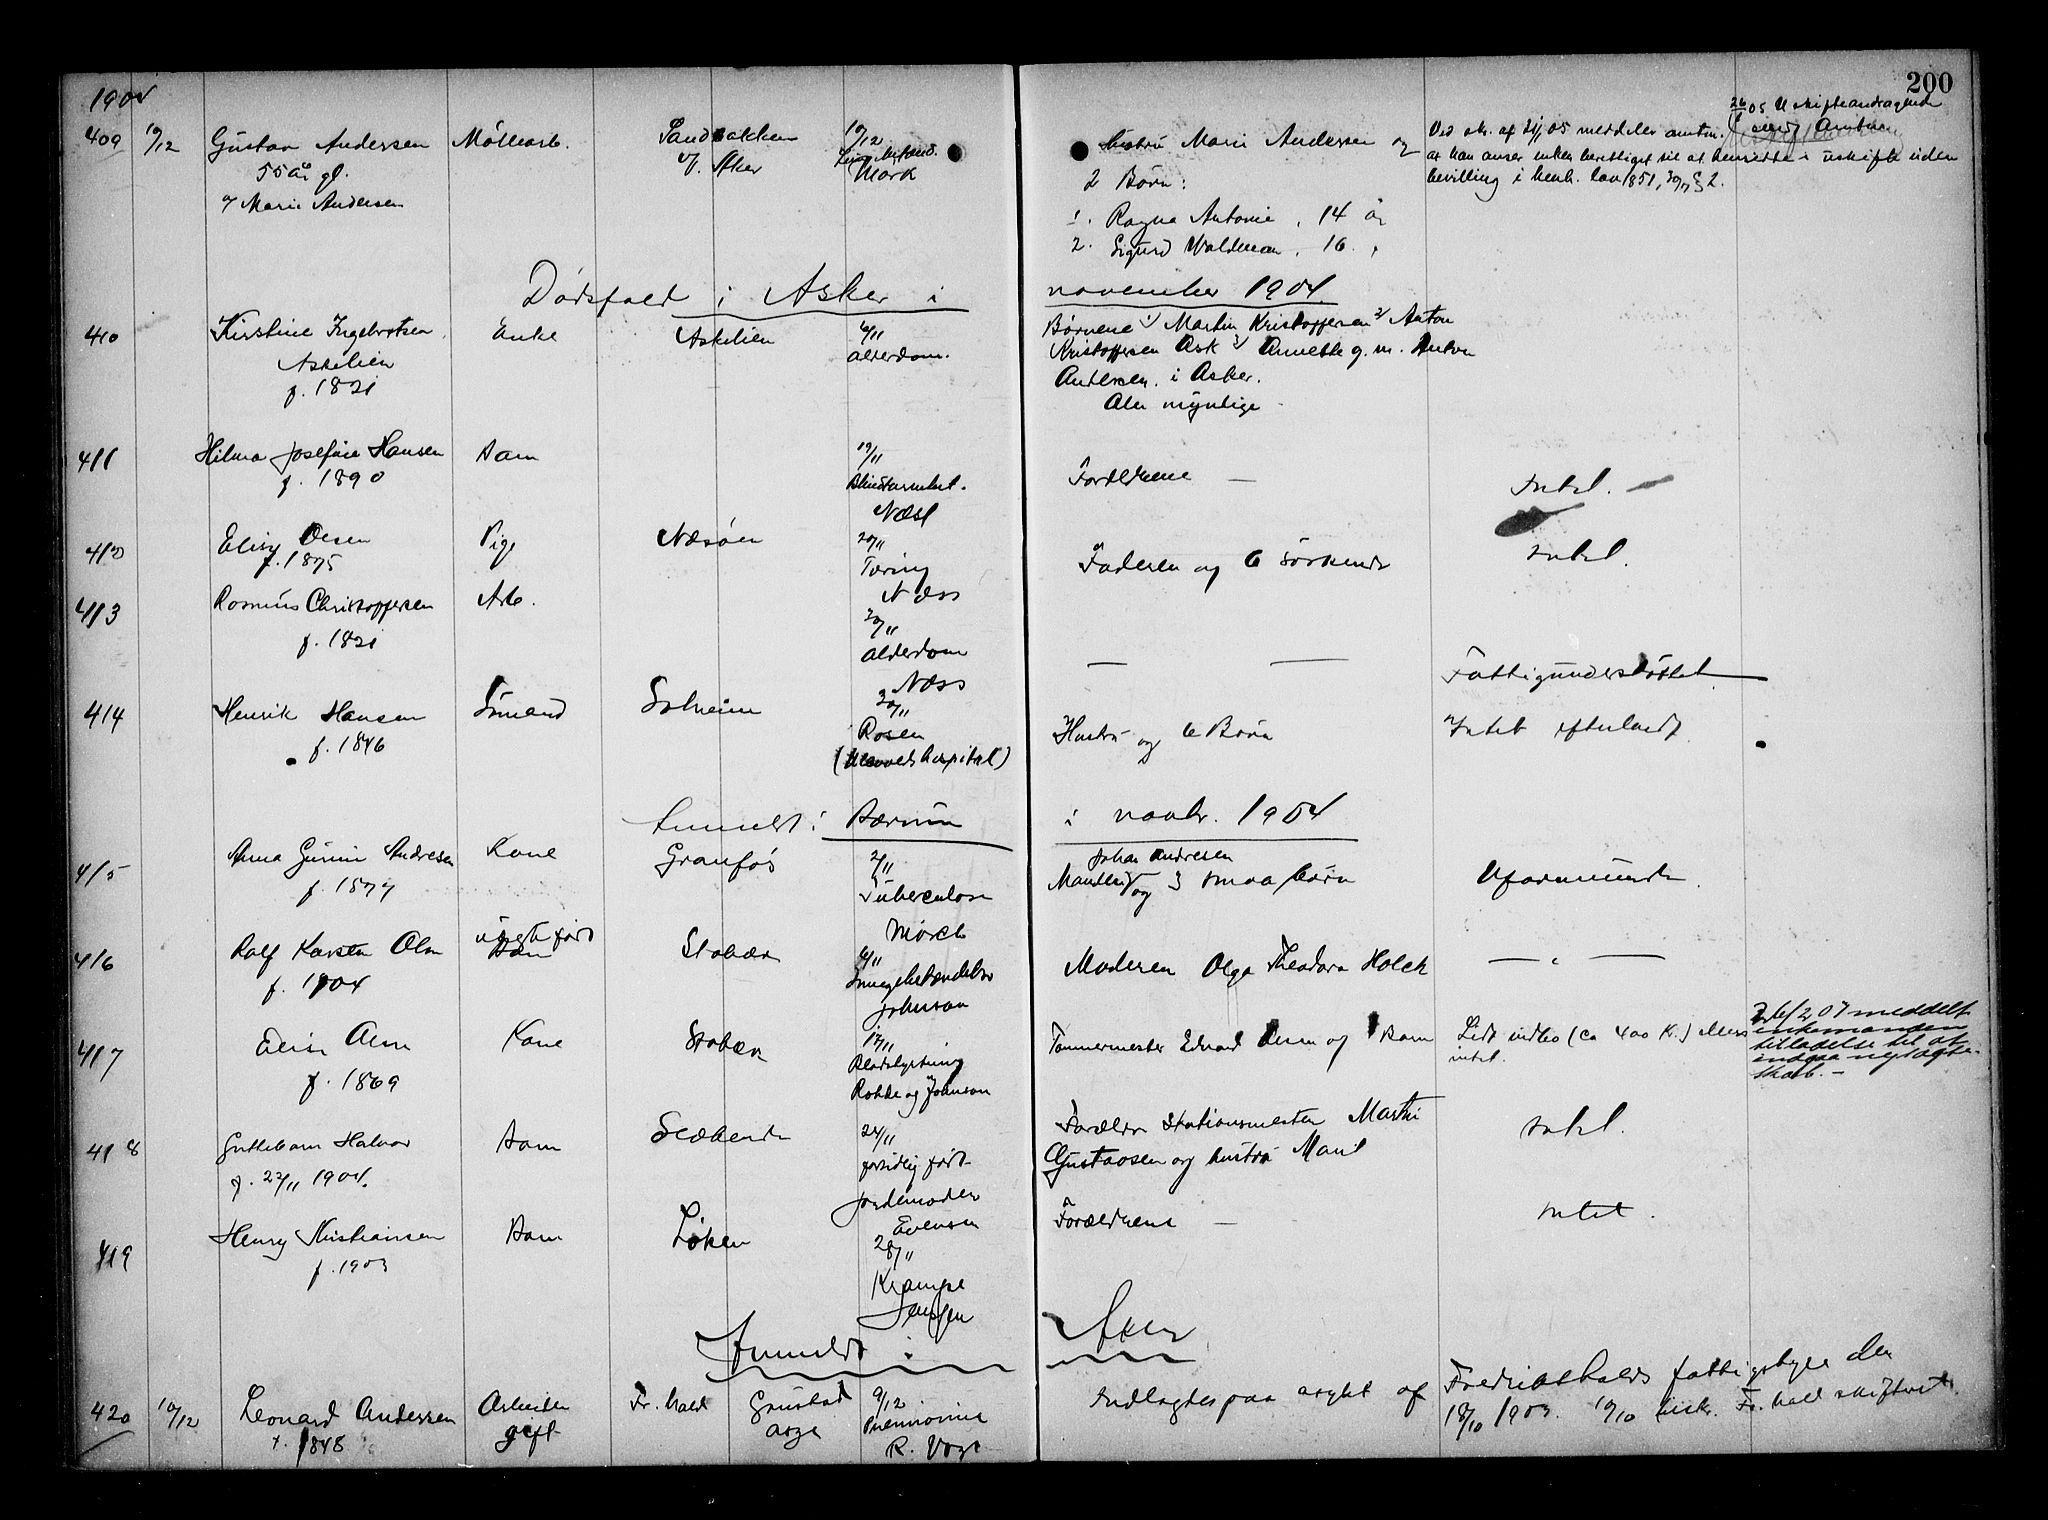 200
1904
409 10/12 Gustav Andersen Møllearb. Sandbakken 10/12 Hustru Marie Andersen og Ved skr. af 24/1 05 meddeler amtm.
55 år gl. v. Aker Mørk 2 Børn: at han anser enken berettiget til at hensidde i uskifte uden
g/ Marie Andersen bevilling i henh. Lov 1851, 30/7 § 2.
1. Ragna Antonie, 14 år
2. Sigurd Waldemar, 16 "
26/1 05 Uskifteandragende
Dødsfald i Asker i november 1904
410 Kirstine Ingebretsen Enke Askelien 6/11 Børnene 1/ Martin Kristoffersen 2/ Anton
Askelien alderdom. Kristoffersen Ask 3/ Annette g. m. Anton
f. 1821 Andersen i Asker.
Alle myndige
411 Hilma Josefine Hansen Barn 19/11 Forældrene — Intet.
f. 1890 Blindtarmbet.
Næss
412 Elisy Olsen Pige Nesøen 20/11 Faderen og 6 søskende Intet.
f. 1875 Tæring
Næss
413 Rasmus Christoffersen Arb. 20/11
f. 1821 alderdom — — Fattigunderstøttet
Næss
414 Henrik Hansen Sømand Solheim 30/11 Hustru og 6 Børn Intet efterladt
f. 1846 Rosen
(Ullevolds hospital)
Anmeldt i Bærum i novbr. 1904
415 Anna Gurine Andresen Kone Granfos 2/11 Johan Andresen
f. 1877 Tuberculose Manden og 3 smaa børn Uformuende
Mørch
416 Ralf Karsten Olm uægte født Stabæk 6/11 Moderen Olga Theodora Holck — " —
f. 1904 Barn Lungebetændelse
Johnson
417 Elise Olsen Kone Stabæk 17/11 Tømmermester Edvard Olsen og 1 Barn Lidt indbo (ca 400 Kr.) ellers
f. 1869 Blodstyrtning intet.
Rohde og Johnson
07 meddelt
enkemanden
tilladelse til at
indgaa nyt ægte-
skab. —
418 Guttebarn Halvor Barn Slæbende 24/11 Forældre Stationsmester Martin Intet.
f. 22/11 1904. fortidlig født Gustavsen og hustru Marit
Jordemoder
Evensen
419 Henry Kristiansen Barn Løken 28/11 Forældrene — Intet.
f. 1903 Krampe
Jensen
Anmeldt i Aker
420 10/12 Leonard Andersen Arbeider Fr. hald Gaustad 9/12 Indlagdes paa asylet af Fredrikshalds fattigstyre den
f. 1848 gift asyl Pneumonia 18/10 1903. 19/10 Fr. hald skifteret
R. Vogt